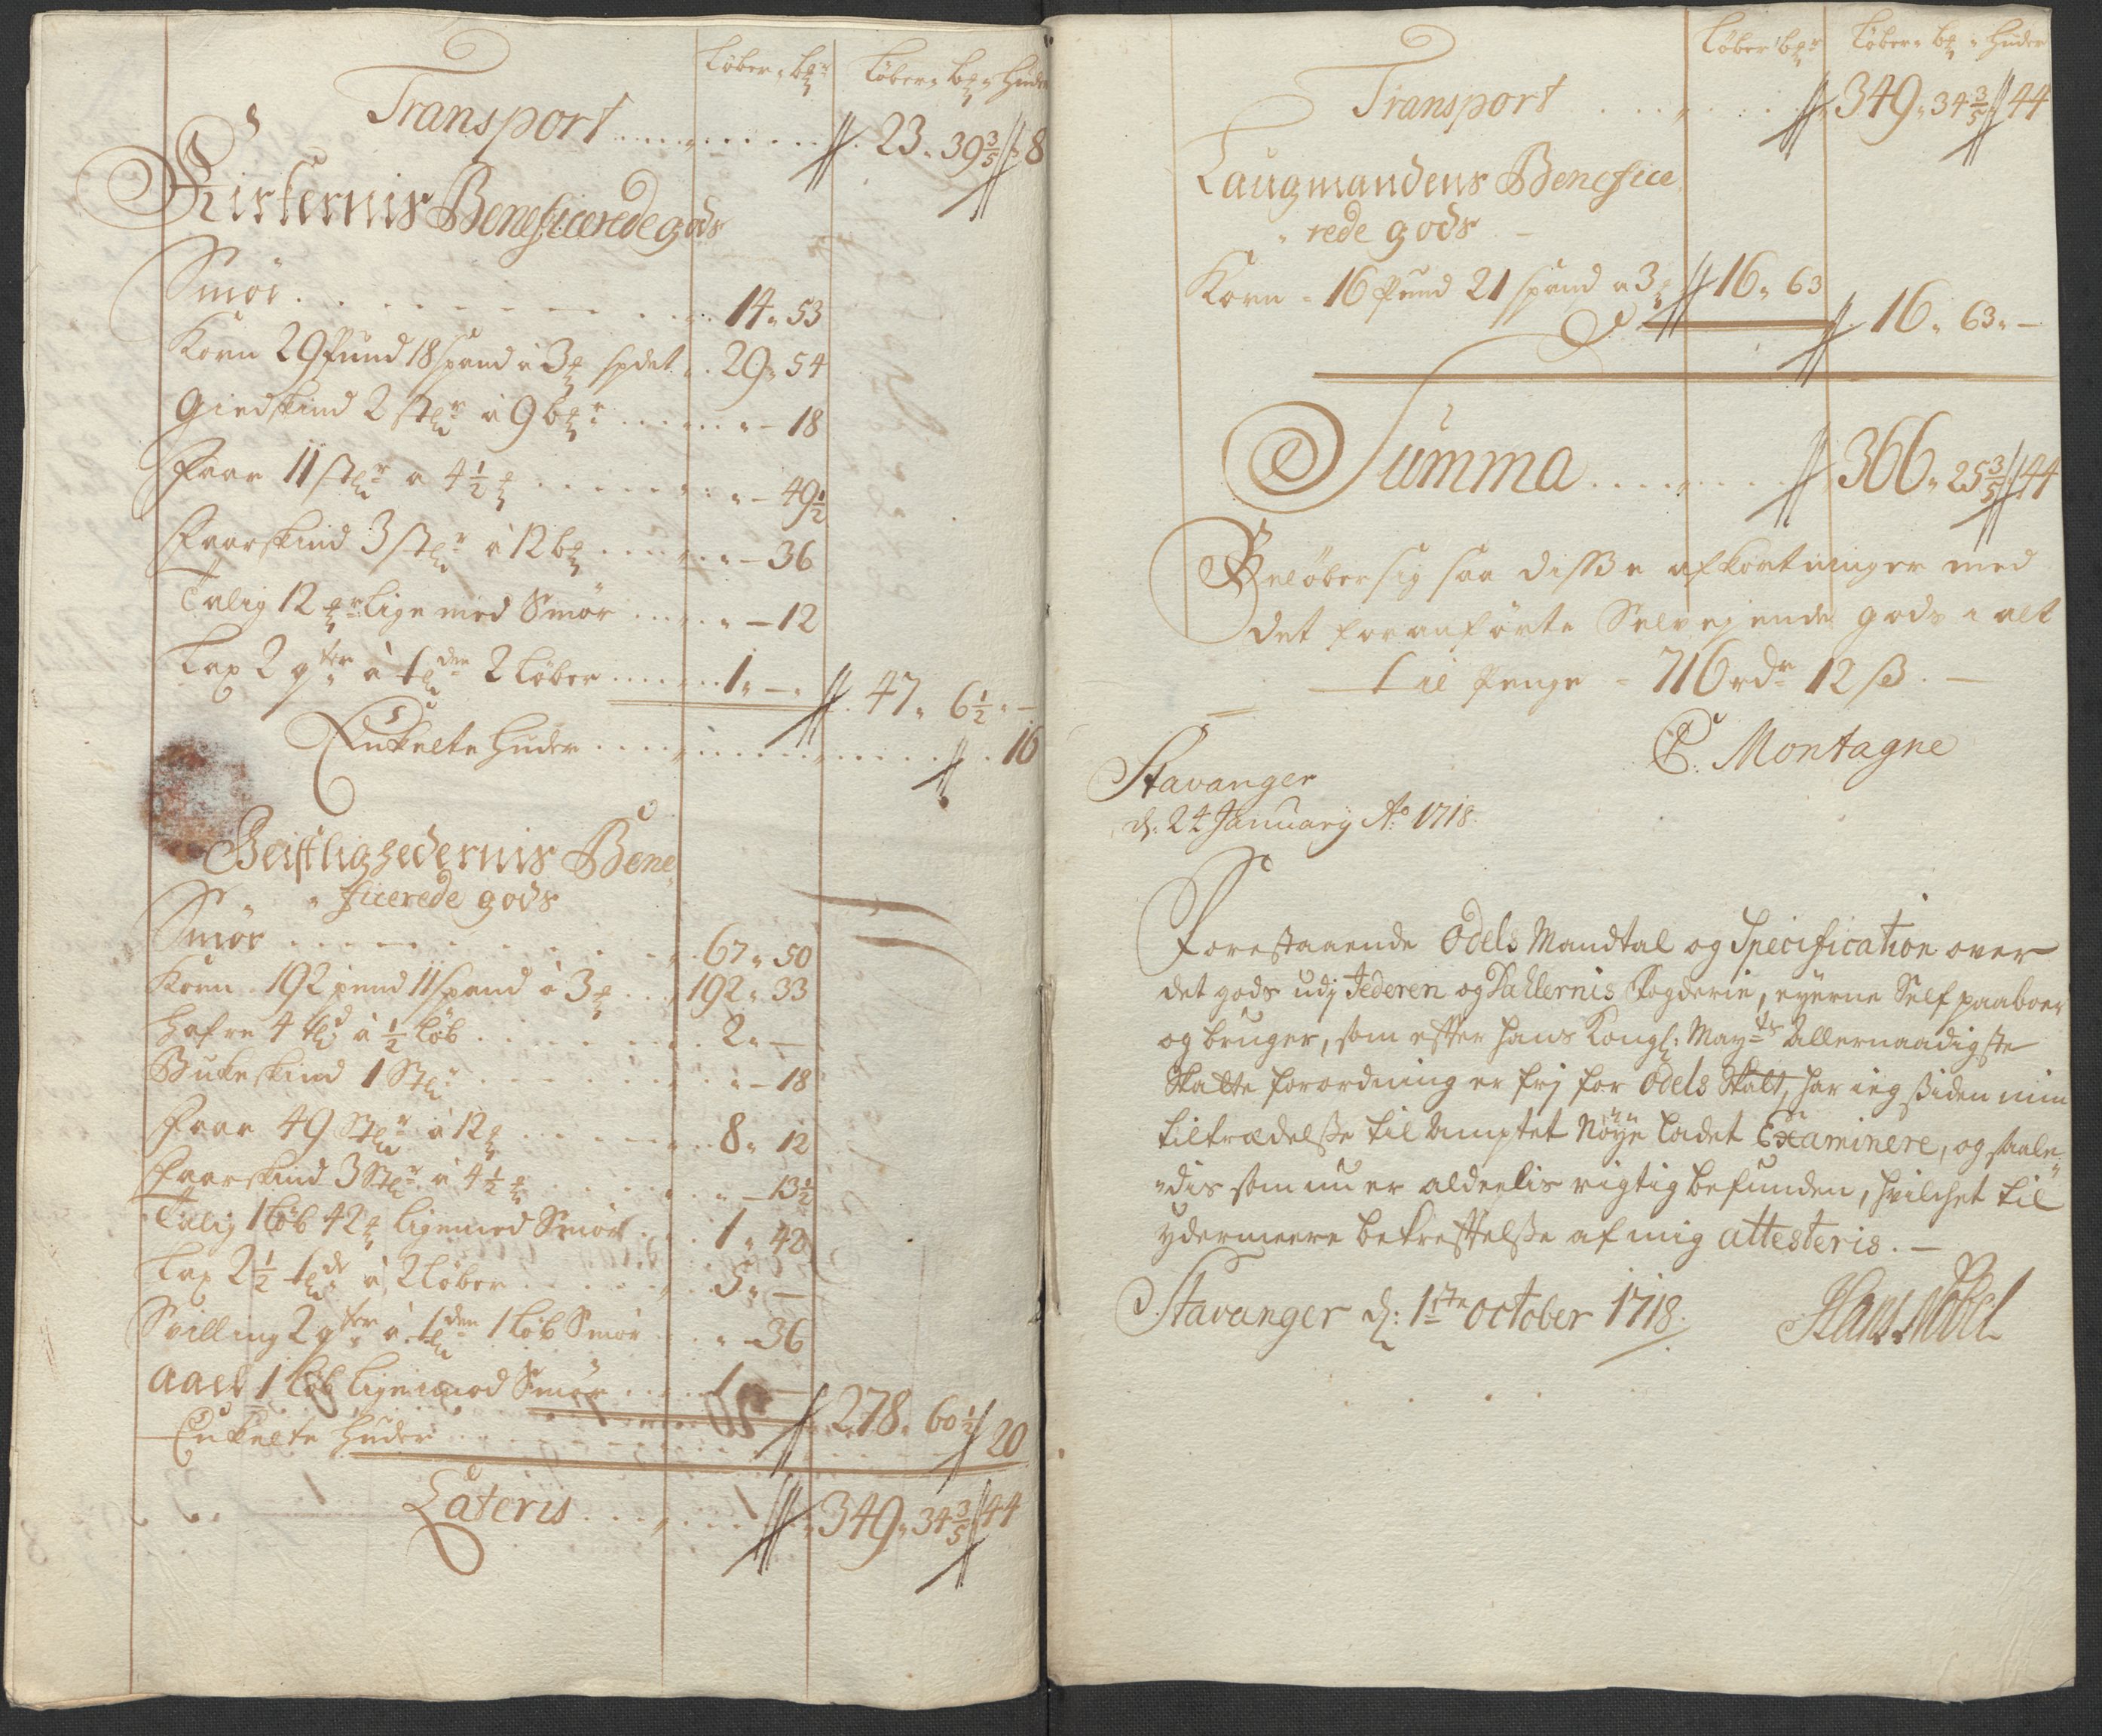 Løber " bpr Løber " bp " Huder
Transport 23 " 39 3/5 " 8
Kirkernis Beneficerede gods
Smør 14 " 53
Korn 29 Pund 18 spand à 3 p spdet 29 " 54
Giedskind 2 Stkr à 9 bpr " - 18
Faar 11 Stkr à 4 1/2 p " - 49 1/2
Faarskind 3 Stkr à 12 bp " - 36
Talig 12 pr lige med Smør " - 12
Lax 2 qter à tden 2 Løber 1 " -
47 " 6 1/2 " -
Enkelte Huder 16
Geistlighedernis Bene
" ficerede gods
Smør 67 " 50
Korn 192 pund 11 spand à 3 p 192 " 33
Hafre 4 td à 1/2 Løb 2 " -
Bukeskind 1 Stkr " - 18
Faar 49 Stkr à 12 p 8 " 12
Faarskind 3 Stkr à 4 1/2 p " - 13 1/2
Talig 1 Løb 42 p lige med Smør 1 " 42
Lax 2 1/2 tdr à 2 Løber 5 " -
Svilling 2 qter à tden 1 Løb Smør " - 36
Aael 1 Løb lige imod Smør 1 " -
278 " 60 1/2 "
Enkelte Huder 20
Lateris 349 " 34 3/5 " 44
Løber " bpr Løber " bp " Huder
Transport 349 " 34 3/5 " 44
Laugmandens Benefice
" rede gods -
Korn - 16 Pund 21 spand à 3 p 16 " 63
16 " 63 " -
Summa 366 " 25 3/5 " 44
Beløber sig saa disse afkortninger med
det foranførte Selvejende gods i alt
- til Penge - 716 rdr 12 ß. -
C. Montagne
Stavanger
d: 24 January Ao 1718.
Forestaaende Odels Mandtal og Specification over
det gods udj Jederen og Dahlernis Fogderie, eyerne Self paaboer
og bruger, som effter Hans Kongl: Mayts Allernaadigste
Skatte forordning er frj for Odels Skatt, har ieg siden min
tiltrædelse til Amptet Nøye ladet Examinere, og saale
"dis som nu er aldeelis rigtig befunden, hvilchet til
ydermeere bekrefftelse af mig attesteris. -
Stavanger d: 1ste October 1718. Hans Nobel